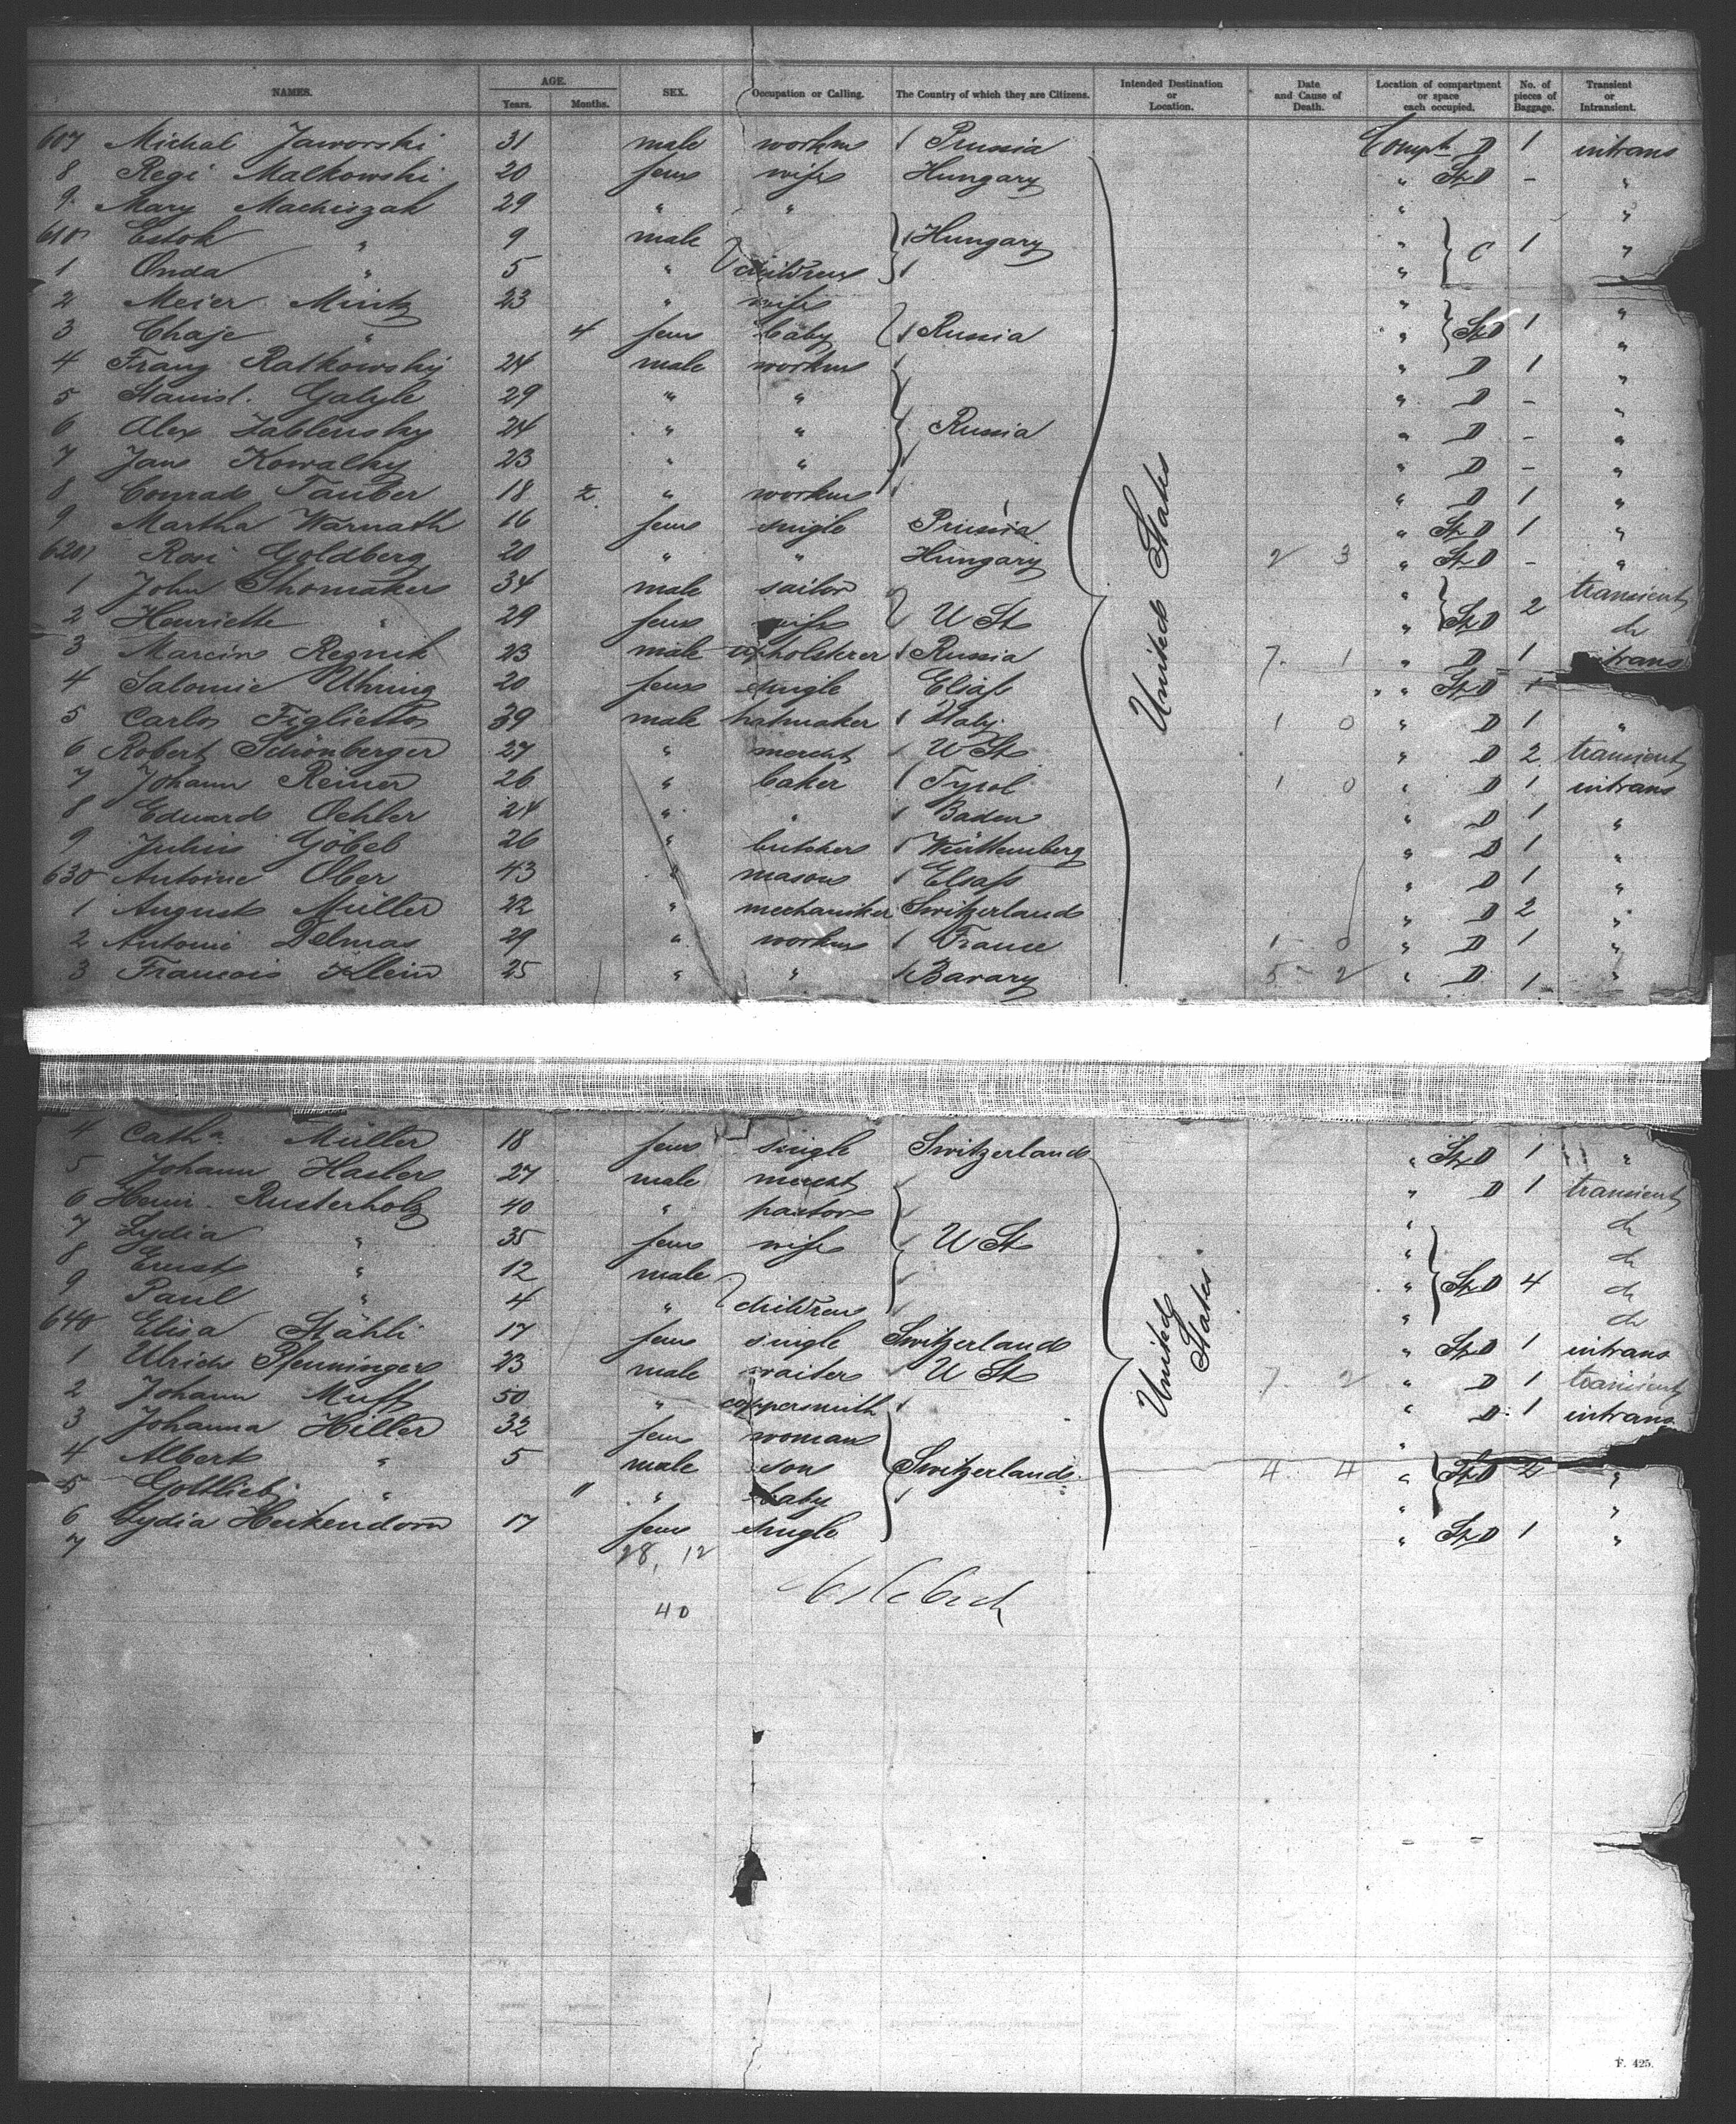 NAMES. AGE. Years. Months. SEX. Occupation or Calling. The Country of which they are Citizens. Intended Destination or Location. Date and Cause of Death. Location of compartment or space each occupied. No. of pieces of Baggage. Transient or Intransient.
607 Michal Jaworski 31 male workm Prussia Compt. D 1 intrans
8 Regi Malkowski 20 fem wife Hungary " St D - "
9 Mary Machiszak 29 " " " "
610 Estok " 9 male Hungary " C 1 "
1 Onda " 5 " children "
2 Meier Mintz 23 " wife " "
3 Chaje " 4 fem baby Russia " St D 1 "
4 Franz Ratkowsky 24 male workm " D 1 "
5 Stanisl. Galyle 29 " " " D - "
6 Alex Jablensky 24 " " Russia " D - "
7 Jan Kowalky 23 " " " D - "
8 Conrad Tauber 18 " workm " D 1 "
9 Martha Warnath 16 fem single Prussia " St D 1 "
620 Rosi Goldberg 20 " " Hungary 2 3 " St D - "
1 John Shomaker 34 male sailor " transient
2 Henriette " 29 fem wife U St " St D 2 do
3 Marcin Regnik 23 male upholsterer Russia 7 1 " D 1 intrans
4 Salomie Uhring 20 fem single Elsaß " St D 1
5 Carlo Figlietto 39 male hatmaker Italy 1 0 " D 1 "
6 Robert Schönberger 27 " mercht U St " D 2 transient
7 Johann Reiner 26 " baker Tyrol 1 0 " D 1 intrans
8 Eduard Oehler 24 " " Baden " D 1 "
9 Julius Göbel 26 " butcher Württemberg " D 1 "
630 Antoine Ober 43 " mason Elsaß " D 1 "
1 August Müller 22 " mechaniker Switzerland " D 2 "
2 Antoine Delmas 29 " workm France 1 0 " D 1 "
3 Francois Klein 25 " " Bavary 5 2 " D 1 "
United States
4 Cath.a Müller 18 fem single Switzerland " St D 1 "
5 Johann Hasler 27 male mercht " D 1 transient
6 Heinr. Rusterholz 40 " pastor " do
7 Lydia " 35 fem wife U St " do
8 Ernst " 12 male " St D 4 do
9 Paul " 4 " children " do
640 Elisa Stähli 17 fem single Switzerland " St D 1 intrans
1 Ulrich Pfenninger 23 male waiter U St 7 2 " D 1 transient
2 Johann Muff 50 " coppersmith " D 1 intrans
3 Johanna Hiller 32 fem woman "
4 Albert " 5 male son Switzerland 4 4 " St D 2 "
5 Gottlieb " 11 " baby " "
6 Lydia Heikendorn 17 fem single " St D 1 "
7
United States
28, 12
40
F. 425.